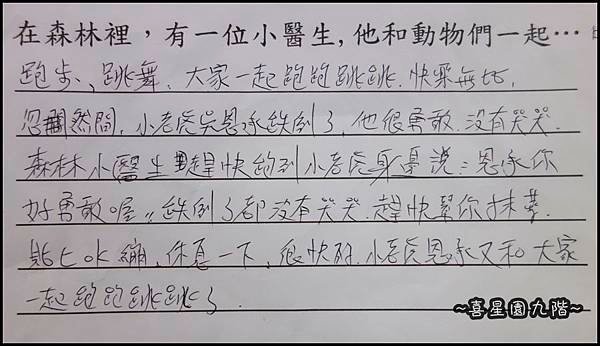 在森林裡，有一位小醫生，他和動物們一起…
跑步、跳舞、大家一起跑跑跳跳．快樂無比，
忽然間，小老虎吳恩承跌倒了，他很勇敢．沒有哭哭．
森林小醫生趕快跑到小老虎身邊說：恩承你
好勇敢喔！跌倒了都沒有哭哭．趕快幫你抹藥．
貼ㄜok繃，休息一下，很快的．小老虎恩承又和大家
一起跑跑跳跳了．
~喜星園九階~